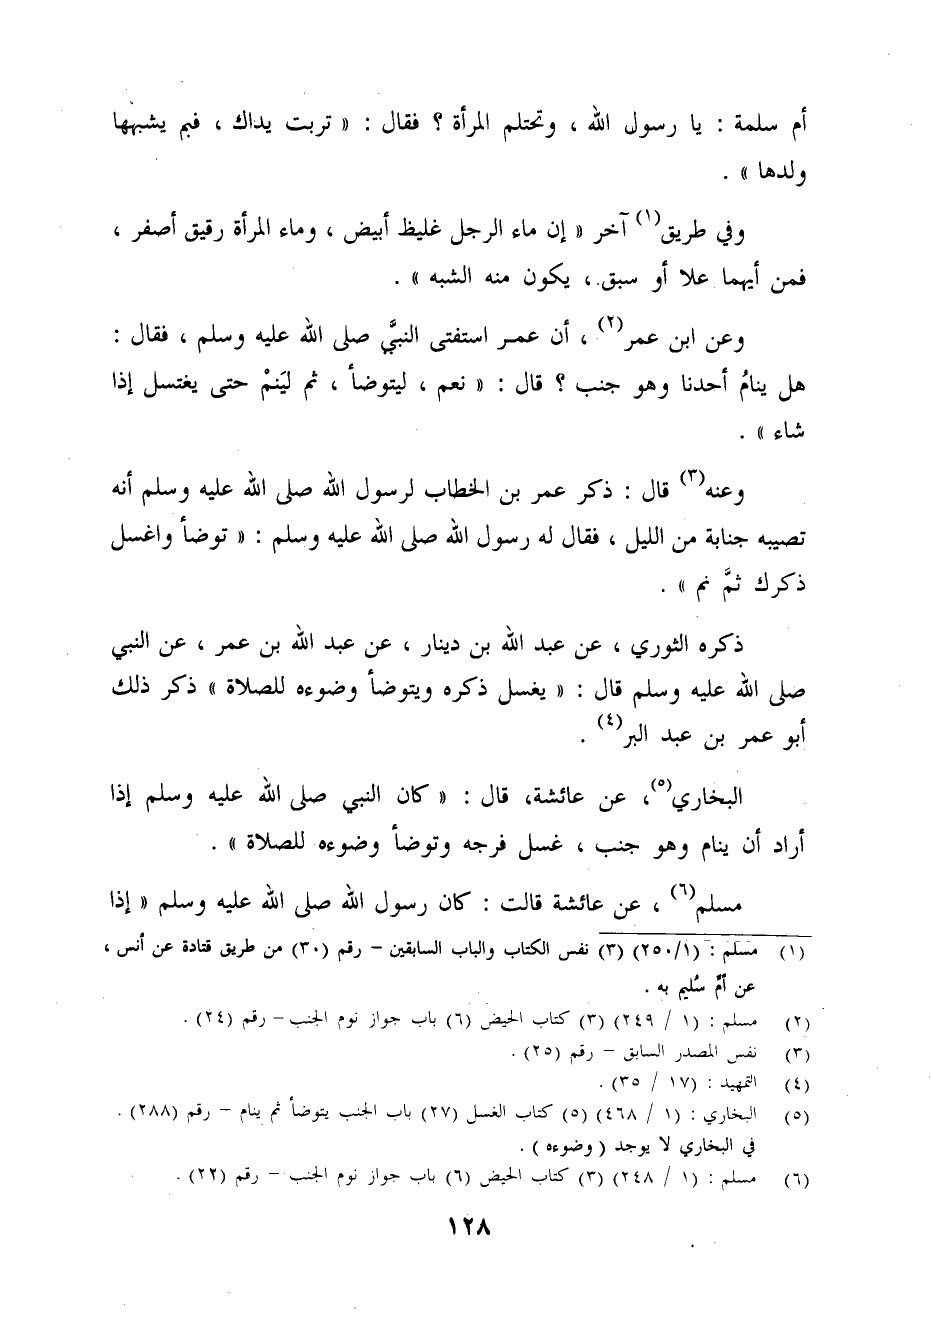 أم سلمة : يا رسول الله ، وتحتلم المرأة ؟ فقال : « تربت يداك ، فبم يشبهها
ولدها » .
وفي طريق(١) آخر « إن ماء الرجل غليظ أبيض ، وماء المرأة رقيق أصفر ،
فمن أيهما علا أو سبق ، يكون منه الشبه » .
وعن ابن عمر(٢) ، أن عمر استفتى النبيَّ صلى الله عليه وسلم ، فقال :
هل ينامُ أحدنا وهو جنب ؟ قال : « نعم ، ليتوضأ ، ثم ليَنمْ حتى يغتسل إذا
شاء » .
وعنه(٣) قال : ذكر عمر بن الخطاب لرسول الله صلى الله عليه وسلم أنه
تصيبه جنابة من الليل ، فقال له رسول الله صلى الله عليه وسلم : « توضأ واغسل
ذكرك ثمَّ نم » .
ذكره الثوري ، عن عبد الله بن دينار ، عن عبد الله بن عمر ، عن النبي
صلى الله عليه وسلم قال : « يغسل ذكره ويتوضأ وضوءه للصلاة » ذكر ذلك
أبو عمر بن عبد البر(٤) .
البخاري(٥)، عن عائشة، قال : « كان النبي صلى الله عليه وسلم إذا
أراد أن ينام وهو جنب ، غسل فرجه وتوضأ وضوءه للصلاة » .
مسلم(٦) ، عن عائشة قالت : كان رسول الله صلى الله عليه وسلم « إذا
(١) مسلم : (٢٥٠/١) (٣) نفس الكتاب والباب السابقين – رقم (٣٠) من طريق قتادة عن أنس ،
عن أمِّ سُليم به .
(٢) مسلم : (١ / ٢٤٩) (٣) كتاب الحيض (٦) باب جواز نوم الجنب – رقم (٢٤) .
(٣) نفس المصدر السابق – رقم (٢٥) .
(٤) التمهيد : (١٧ / ٣٥) .
(٥) البخاري : (١ / ٤٦٨) (٥) كتاب الغسل (٢٧) باب الجنب يتوضأ ثم ينام – رقم (٢٨٨) .
في البخاري لا يوجد ( وضوءه ) .
(٦) مسلم : (١ / ٢٤٨) (٣) كتاب الحيض (٦) باب جواز نوم الجنب – رقم (٢٢) .
١٢٨